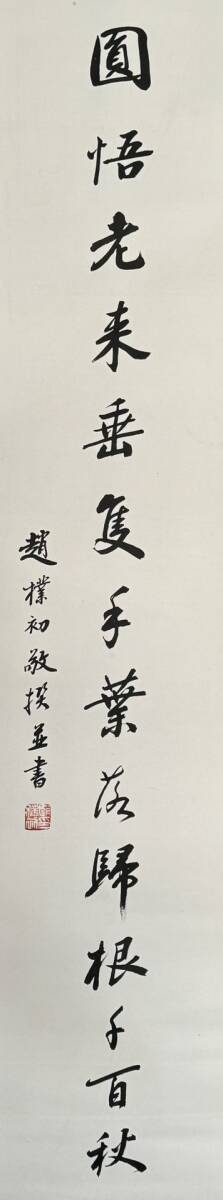 圓悟老来垂隻手葉落歸根千百秋
趙樸初敬撰並書